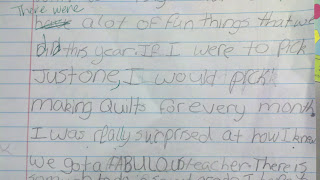 There were
a lot of fun things that we
did this year. If I were to pick
just one, I would pick
making Quilts for every month
I was really surprised at how I knew
we got a FABULOUS teacher. There is